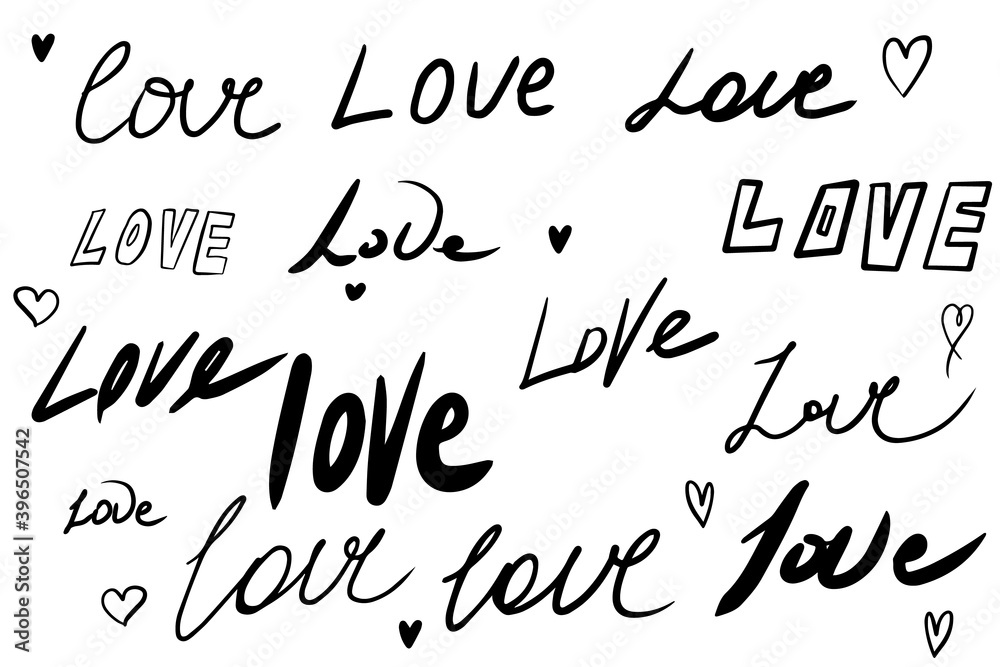 love Love Love
LOVE Love LOVE
Love love Love Love
Love love love love
Adobe Stock | #396507542